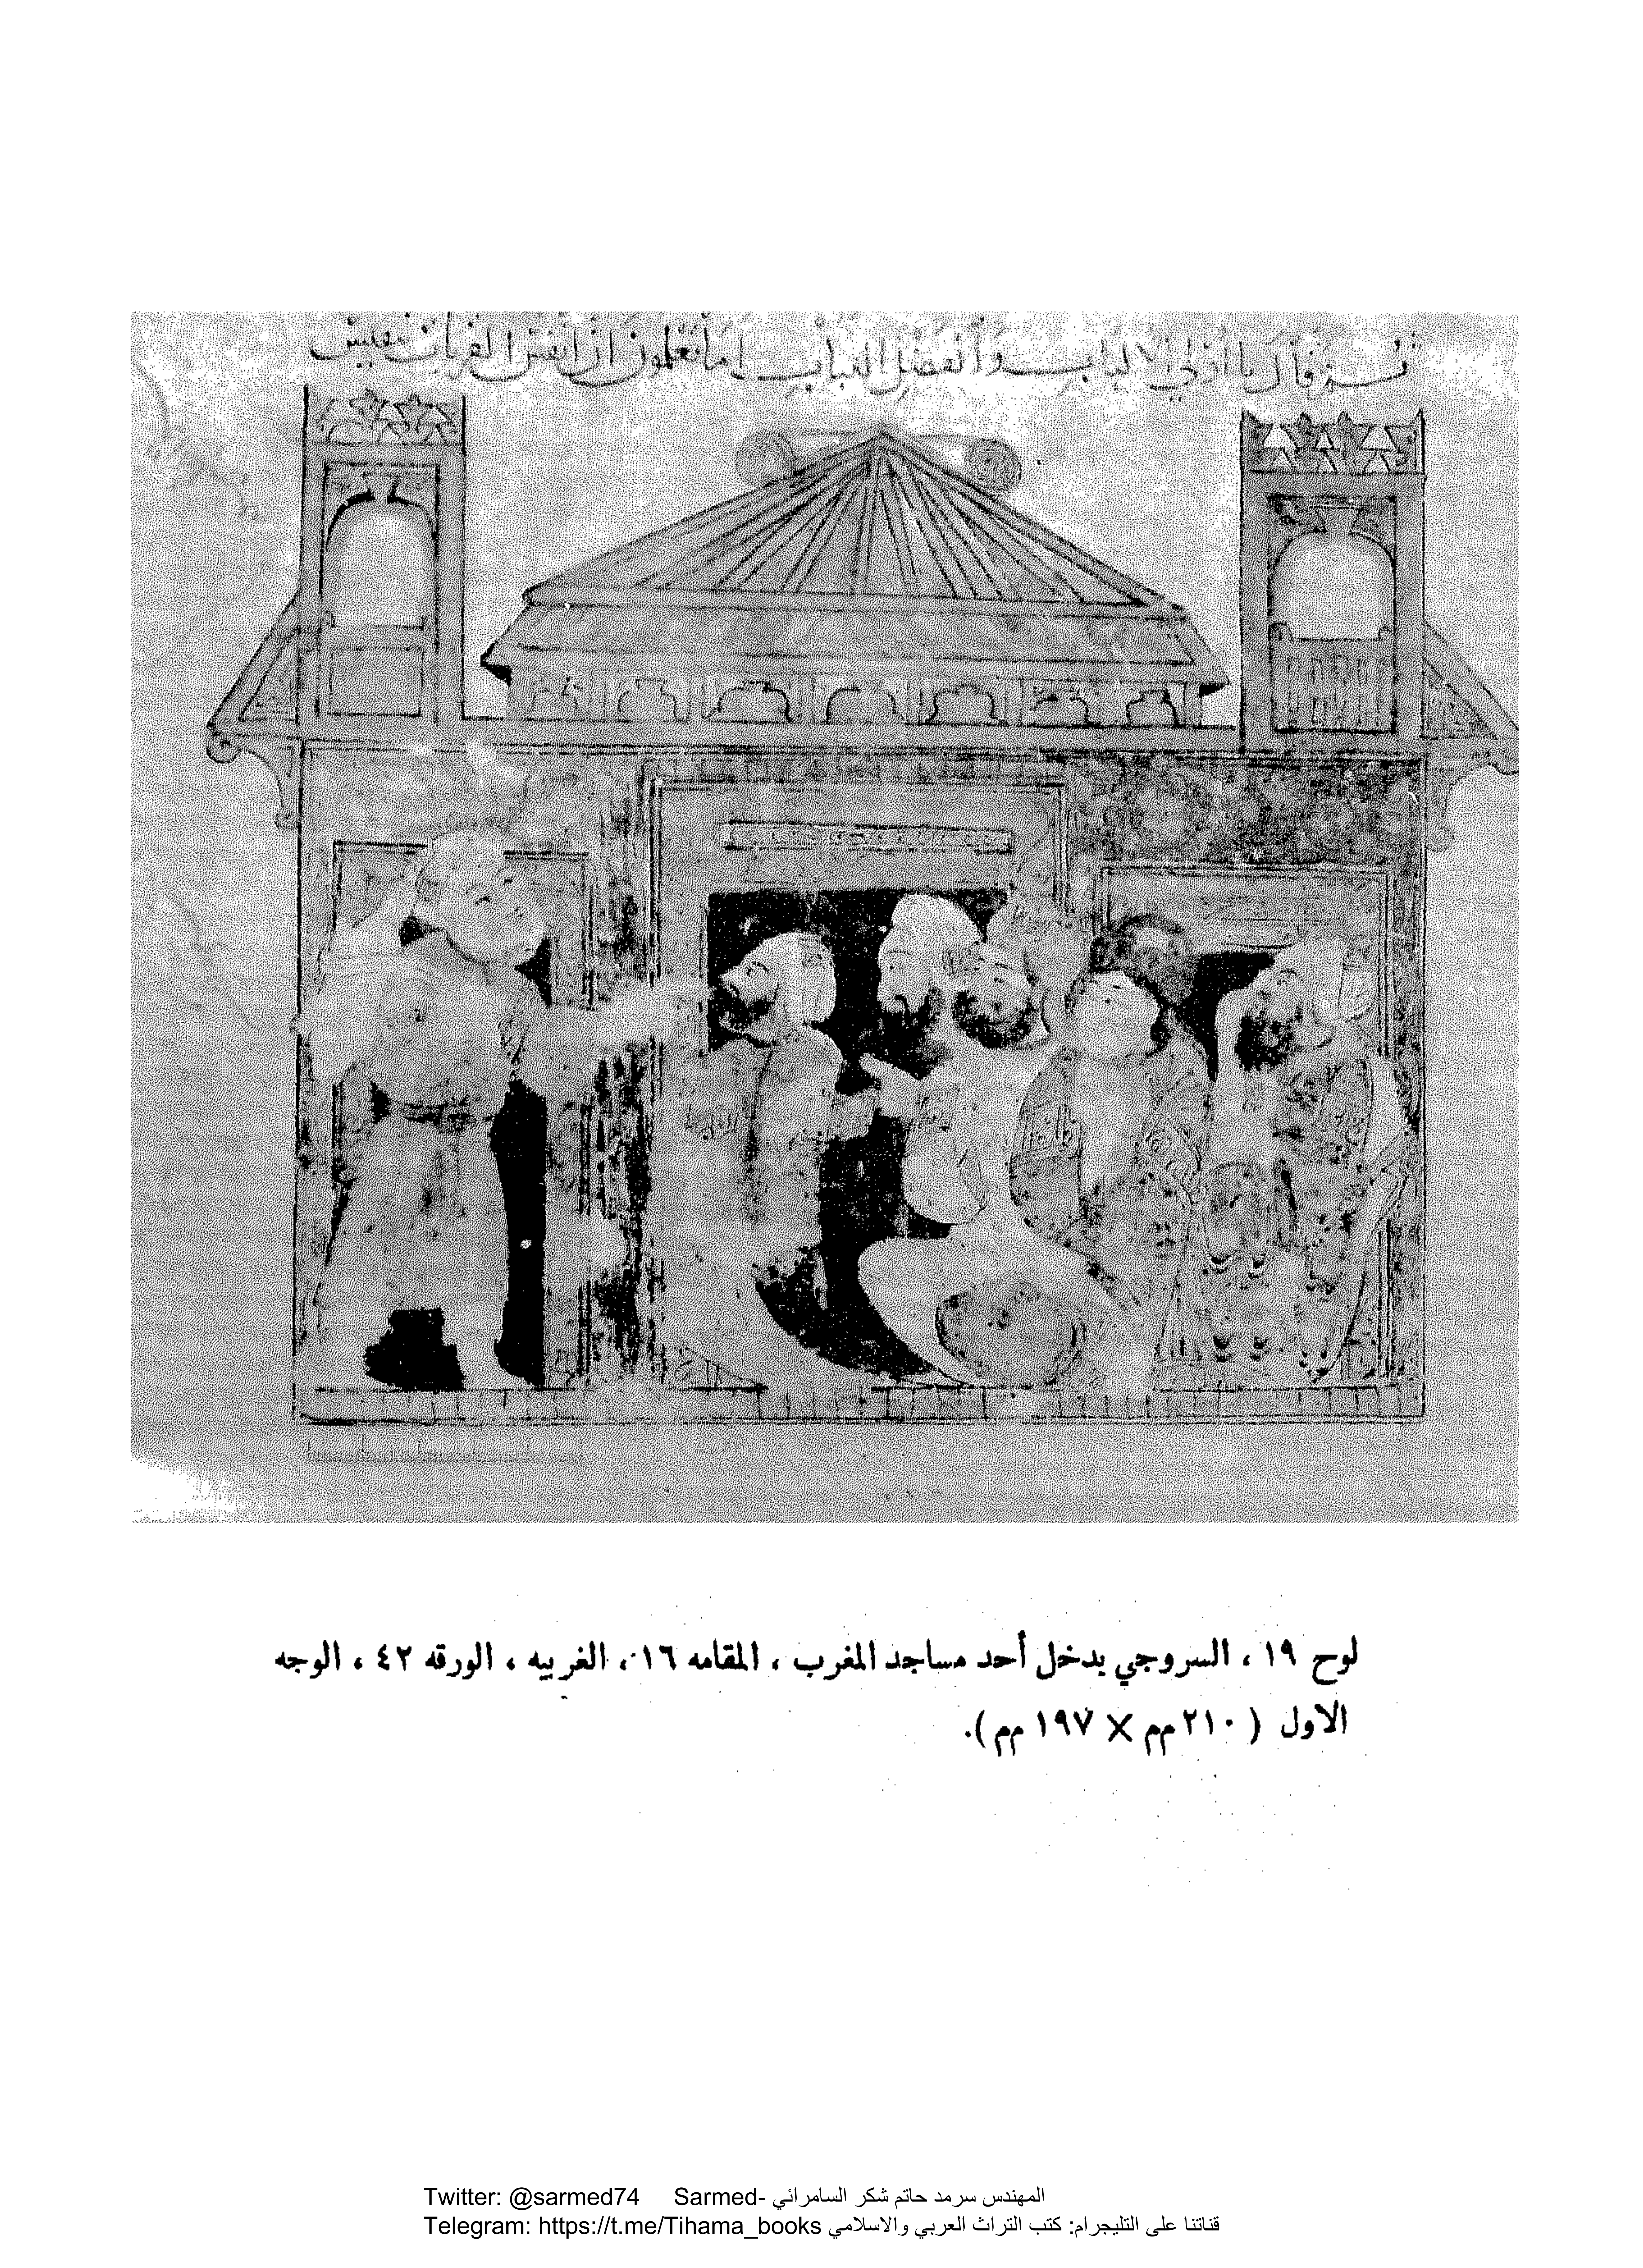 ثم قال يا اولي الالباب والفضل اللباب اما تعلمون ان انفس القربات تنفيس
لوح ١٩ ، السروجي يدخل أحد مساجد المغرب ، المقامه ١٦ ، الغربيه ، الورقه ٤٢ ، الوجه
الاول ( ٢١٠ مم × ١٩٧ مم ).
Twitter: @sarmed74 Sarmed- المهندس سرمد حاتم شكر السامرائي
Telegram: https://t.me/Tihama_books قناتنا على التليجرام: كتب التراث العربي والاسلامي